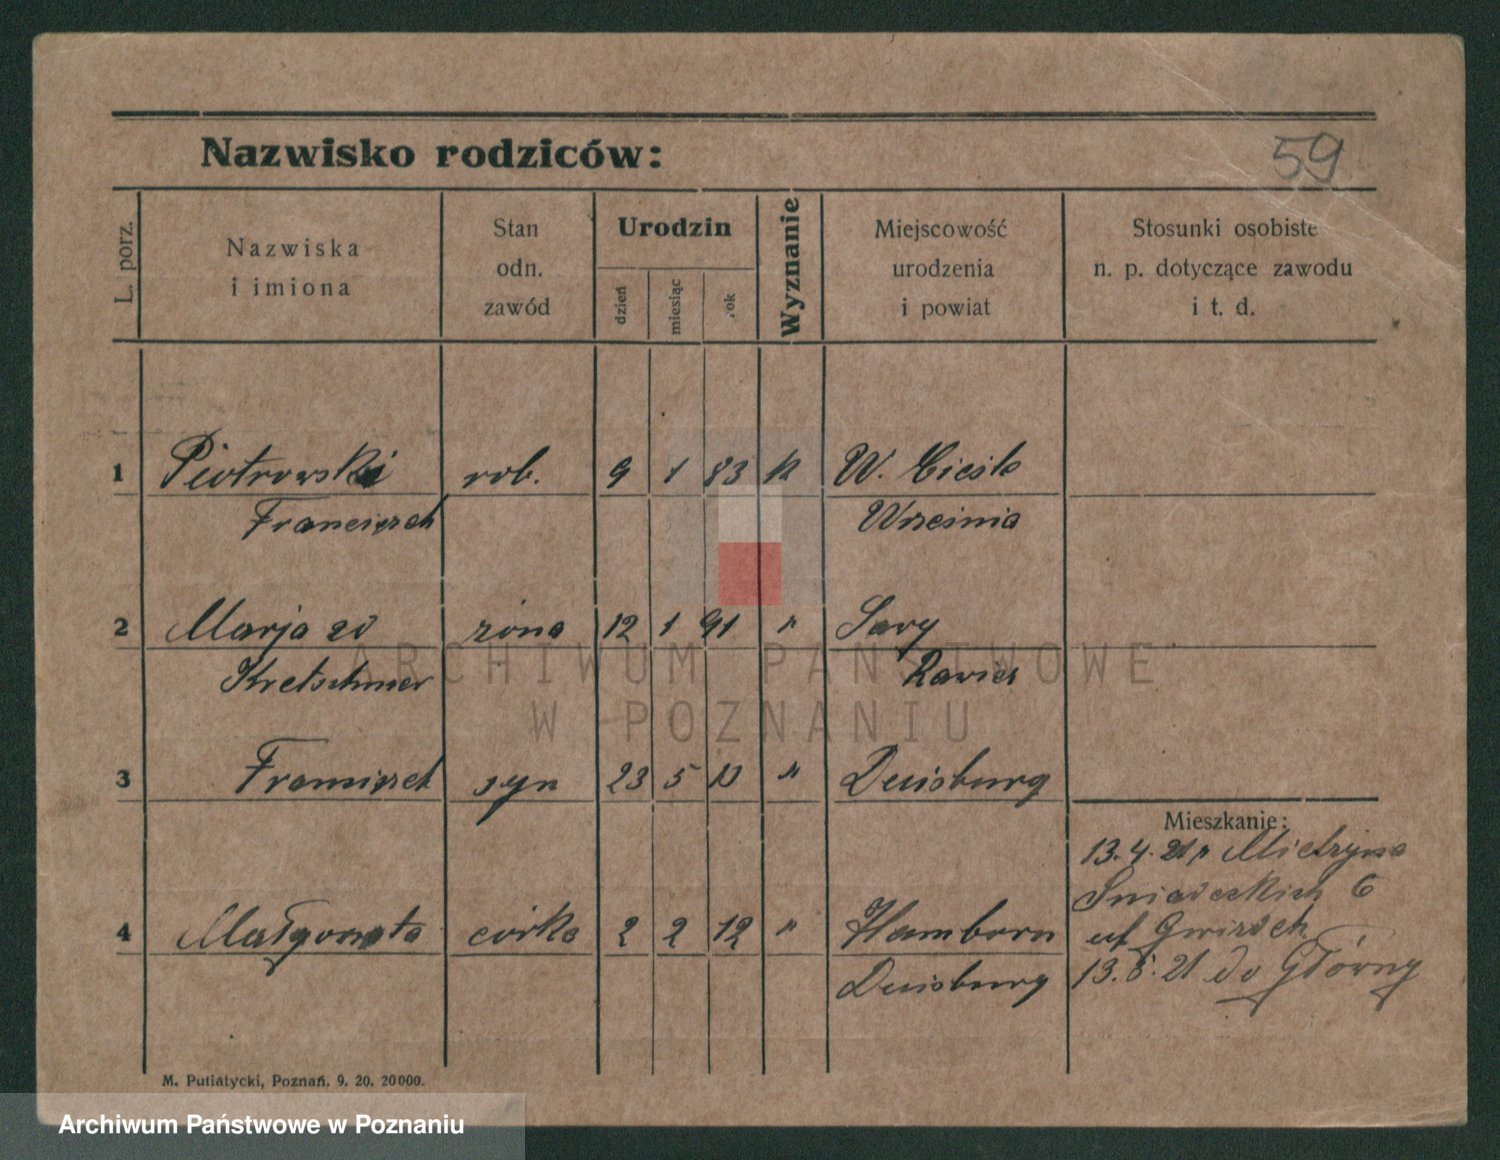 Nazwisko rodziców:
59
L. porz.
Nazwiska
i imiona
Stan
odn.
zawód
Urodzin
dzień
miesiąc
rok
Wyznanie
Miejscowość
urodzenia
i powiat
Stosunki osobiste
n. p. dotyczące zawodu
i t. d.
1 Piotrowski rob. 9 1 83 k W.
Franciszek Września
2 Marja zd żona 12 1 91 " Sary
Kretschmer Rawicz
3 Franciszek syn 23 5 " Duisburg
Mieszkanie:
13.4.21
Śniadeckich 6
4 Małgorzata córka 2 2 12 " Hamborn
Duisburg
13.8.21 do Główny
M. Putiatycki, Poznań. 9. 20. 20000.
ARCHIWUM PAŃSTWOWE
W POZNANIU
Archiwum Państwowe w Poznaniu